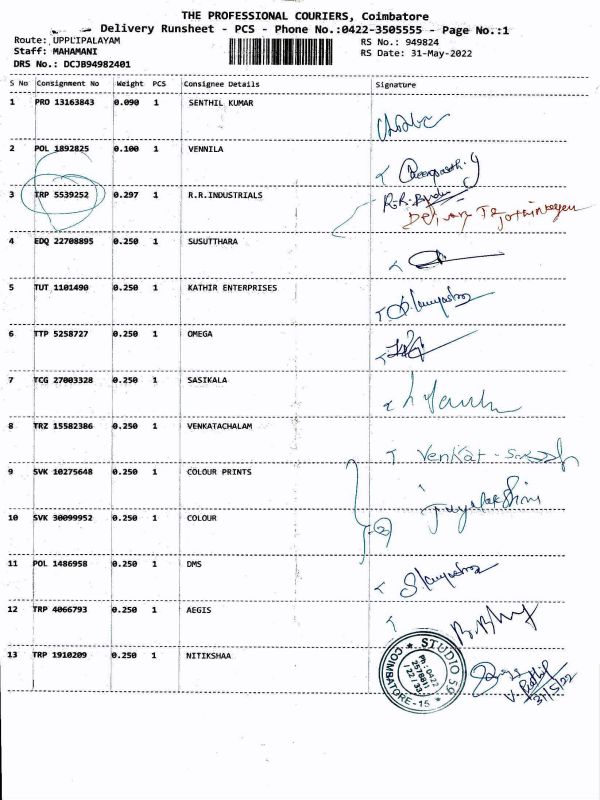 THE PROFESSIONAL COURIERS, Coimbatore
Delivery Runsheet - PCS - Phone No.:0422-3505555 - Page No.:1
Route: UPPLIPALAYAM RS No.: 949824
Staff: MAHAMANI RS Date: 31-May-2022
DRS No.: DCJB94982401
S No Consignment No Weight PCS Consignee Details Signature
1 PRO 13163843 0.090 1 SENTHIL KUMAR
2 POL 1892825 0.100 1 VENNILA
3 TRP 5539252 0.297 1 R.R.INDUSTRIALS
4 EDQ 22708895 0.250 1 SUSUTTHARA
5 TUT 1101490 0.250 1 KATHIR ENTERPRISES
6 TTP 5258727 0.250 1 OMEGA
7 TCG 27003328 0.250 1 SASIKALA
8 TRZ 15582386 0.250 1 VENKATACHALAM
Venkat
9 SVK 10275648 0.250 1 COLOUR PRINTS
10 SVK 30099952 0.250 1 COLOUR
11 POL 1486958 0.250 1 DMS
12 TRP 4066793 0.250 1 AEGIS
13 TRP 1910209 0.250 1 NITIKSHAA
STUDIO 59
COIMBATORE-15
Ph : 0422
2578811
/ 22 / 33
31/5/22